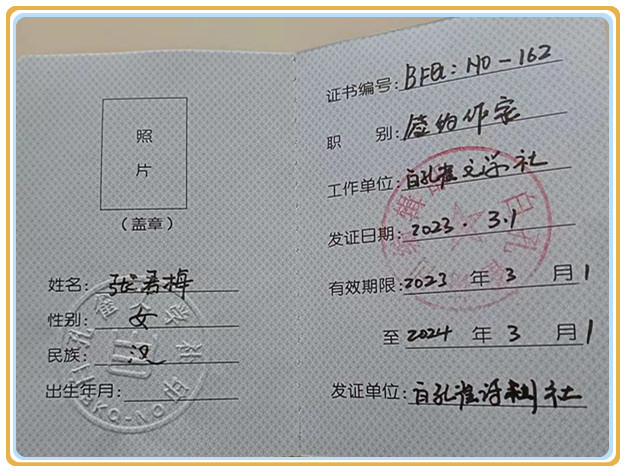 照
片
（盖章）
姓名：张君梅
性别：女
民族：汉
出生年月：
证书编号：BFEL：NO-162
职 别：签约作家
工作单位：白孔雀文学社
发证日期：2023.3.1
有效期限：2023 年 3 月 1
至 2024 年 3 月 1
发证单位：白孔雀诗刊社